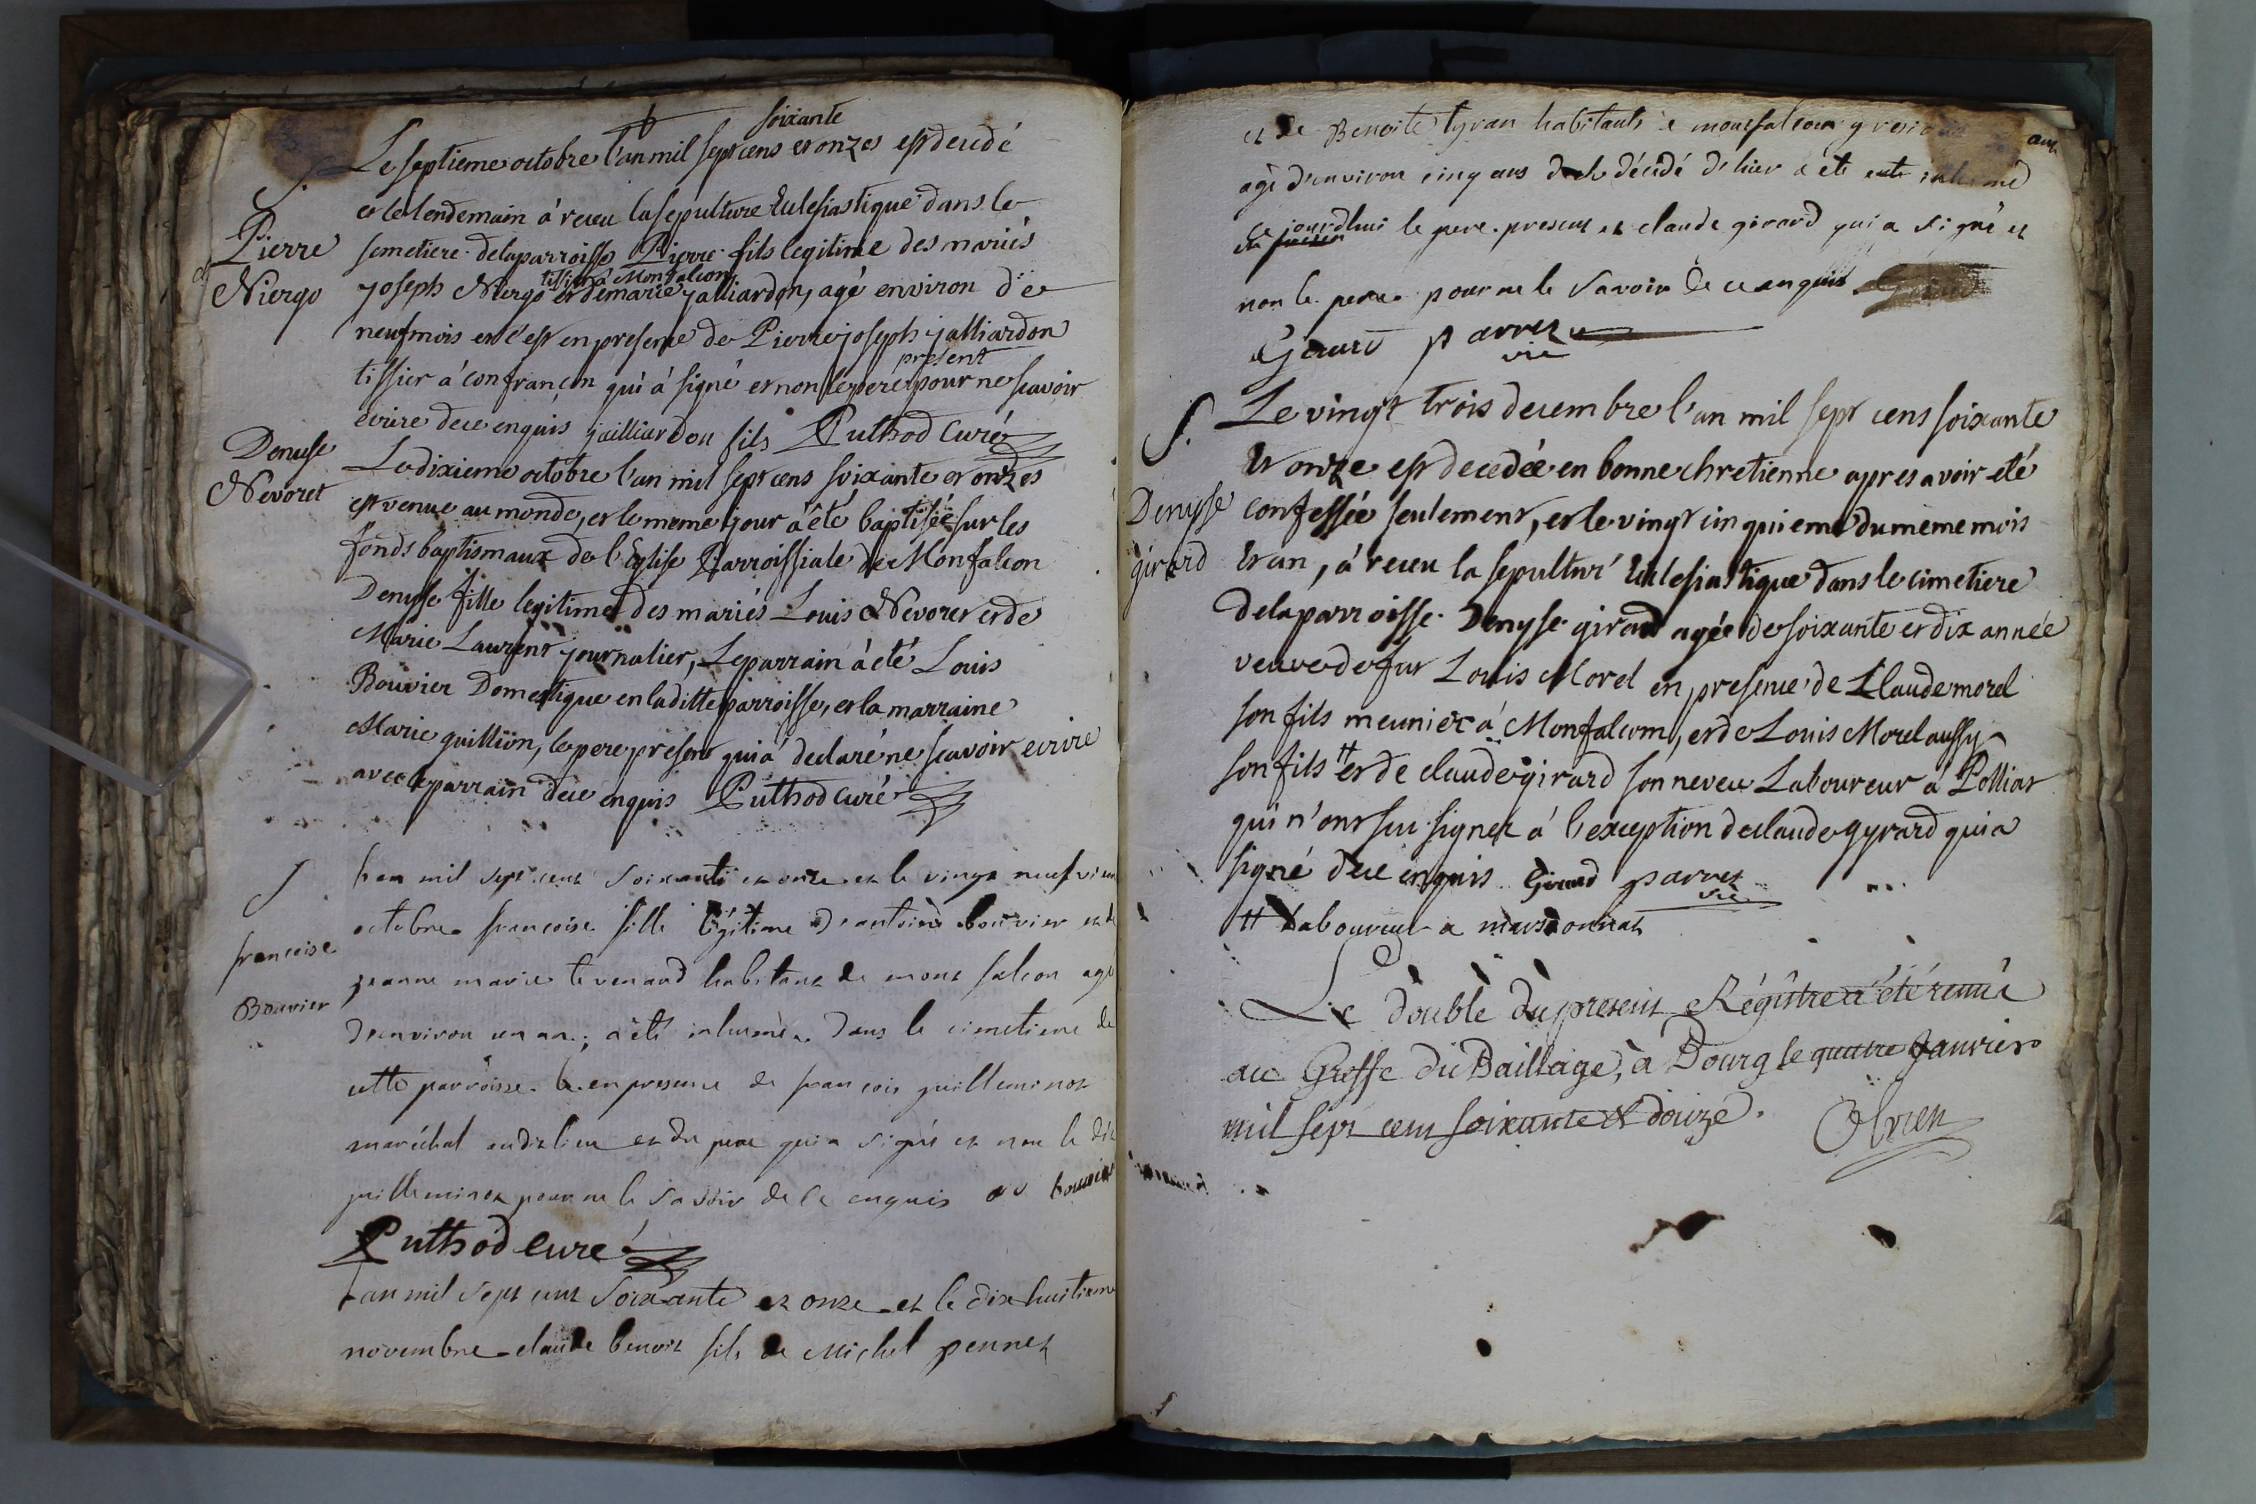 soixante
Le septieme octobre l'an mil sept cens et onzes est decedé
S.
et le lendemain á receu la sepulture Eclesiastique dans le
Pierre
semetiere de la parroisse Pierre fils legitime des mariés
tissier á Monfalcon
Niergo
joseph Niergo et de marie jalliardon, agé environ de
neuf mois et c'est en presence de Pierre joseph jalliardon
present
tissier á confrançon qui á signé et non le pere pour ne scavoir
ecrire de ce enquis jailliardon fils Puthod Curé
Denyse
Nevoret
Le dixieme octobre l'an mil sept cens soixante et onzes
est venue au monde, et le meme jour á été baptisée sur les
fonds baptismaux de l'Eglise Parroissiale de Monfalcon
Denyse fille legitime des mariés Louis Nevoret et de
Marie Laurent journalier, Le parrain á été Louis
Bouvier Domestique en la ditte parroisse, et la marraine
Marie guillion, le pere present qui á declaré ne scavoir ecrire
avec le parrain de ce enquis Puthod Curé
S
lan mil sept cent soixante et onze et le vingt neufvieme
octobre francoise fille légitime d'antoine bouvier et de
francoise
Bouvier
jeanne marie tevenard habitant de mont falcon agé
d'environ un an, a été inhumée dans le cimetiere de
cette parroisse en presence de francois guilleminot
maréchal audit lieu et du pere qui a signé et non le dit
guilleminot pour ne le savoir de ce enquis bouvier
Puthod Curé
lan mil sept cent soixante et onze et le dix huitieme
novembre claude benoit fils de Michel pennet
et de Benoite tyran habitants a montfalcon
agé d'environ cinq ans décédé d'hier a été inhumé
ce jourdhui le pere present et claude girard qui a signé et
non le pere pour ne le savoir de ce enquis
Girard parret
vic
S.
Le vingt trois decembre l'an mil sept cens soixante
et onze est decedée en bonne chretienne apres avoir eté
Denysse
girard
confessée seulement, et le vingt cinquieme du meme mois
et an, á receu la sepulture Eclesiastique dans le cimetiere
de la parroisse Denyse girard agée de soixante et dix année
veuve de fut Louis Morel en presence de Claude morel
son fils meunier á Monfalcom, et de Louis Morel aussy
son fils # et de claude girard son neveu Laboureur á Polliat
qui n'ont scu signer á l'exception de claude gyrard qui a
signé de ce enquis Girard parret
vic
# Laboureur a marsonnat
Le double du present Régitre a été remis
au Greffe du Bailliage, à Bourg le quatre Janvier
mil sept cent soixante et douze.